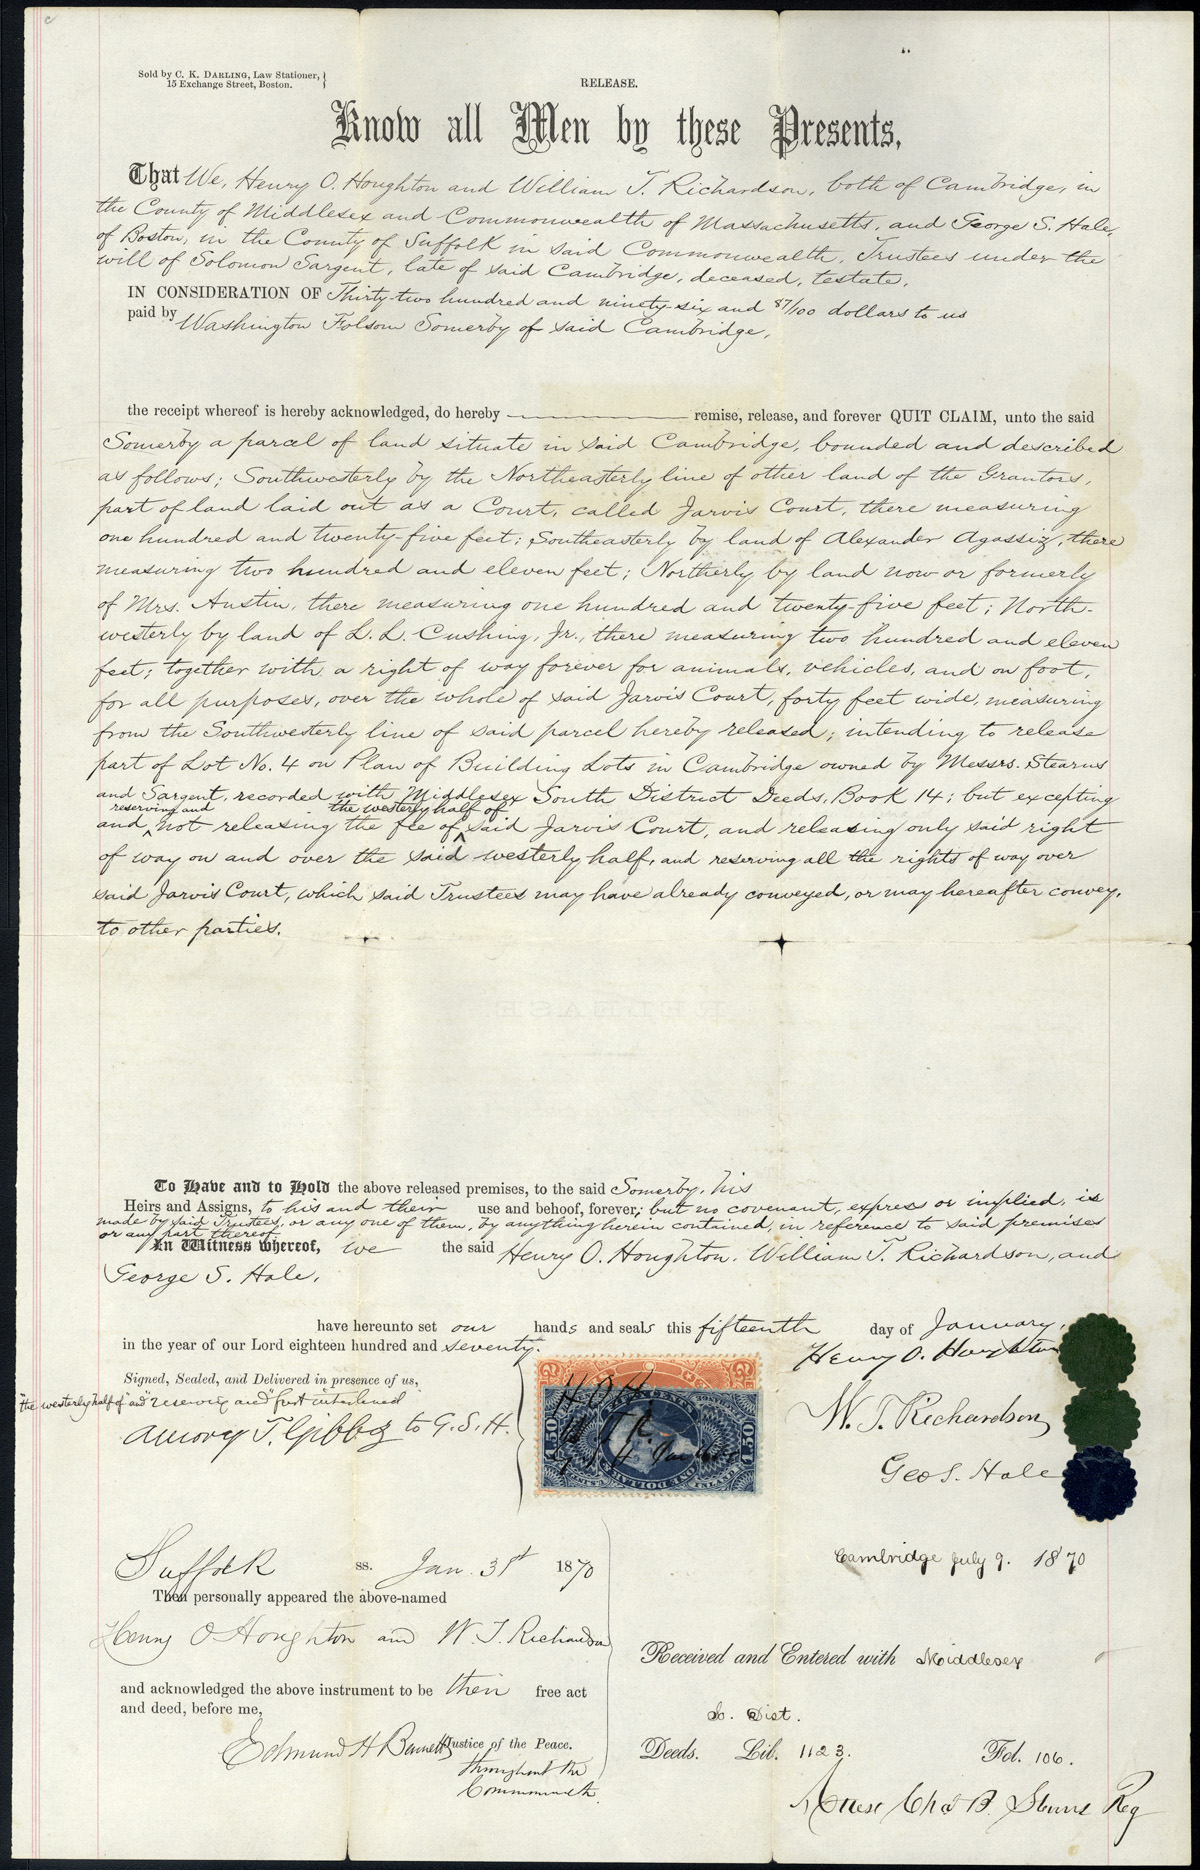 Sold by C. K. DARLING, Law Stationer,
15 Exchange Street, Boston.
RELEASE.
Know all Men by these Presents,
That We, Henry O. Houghton and William T. Richardson, both of Cambridge, in
the County of Middlesex and Commonwealth of Massachusetts, and George S. Hale,
of Boston, in the County of Suffolk in said Commonwealth, Trustees under the
will of Solomon Sargent, late of said Cambridge, deceased, testate,
IN CONSIDERATION OF Thirty-two hundred and ninety-six and 87/100 dollars to us
paid by Washington Folsom Somerby of said Cambridge,
the receipt whereof is hereby acknowledged, do hereby remise, release, and forever QUIT CLAIM, unto the said
Somerby a parcel of land situate in said Cambridge, bounded and described
as follows; Southwesterly by the Northeasterly line of other land of the Grantors,
part of land laid out as a Court, called Jarvis Court, there measuring
one hundred and twenty-five feet; Southeasterly by land of Alexander Agassiz, there
measuring two hundred and eleven feet; Northerly by land now or formerly
of Mrs. Austin, there measuring one hundred and twenty-five feet; North-
westerly by land of L. L. Cushing, Jr., there measuring two hundred and eleven
feet; together with a right of way forever for animals, vehicles, and on foot,
for all purposes, over the whole of said Jarvis Court, forty feet wide, measuring
from the Southwesterly line of said parcel hereby released; intending to release
part of Lot No. 4 on Plan of Building Lots in Cambridge owned by Messrs. Stearns
and Sargent, recorded with Middlesex South District Deeds, Book 14; but excepting
reserving and the westerly half of
and not releasing the fee of said Jarvis Court, and releasing only said right
of way on and over the said westerly half, and reserving all the rights of way over
said Jarvis Court, which said Trustees may have already conveyed, or may hereafter convey,
to other parties.
To Have and to Hold the above released premises, to the said Somerby, his
Heirs and Assigns, to his and their use and behoof, forever; but no covenant, express or implied, is
made by said Trustees, or any one of them, by anything herein contained, in reference to said premises
or any part thereof.
In Witness whereof, we the said Henry O. Houghton, William T. Richardson, and
George S. Hale,
have hereunto set our hands and seals this fifteenth day of January,
in the year of our Lord eighteen hundred and seventy.
Henry O. Houghton
Signed, Sealed, and Delivered in presence of us,
"the westerly half of" and "reserving and" first interlined
Amory T. Gibbs to G. S. H.
W. T. Richardson
Geo S. Hale
H O H
W. T. R.
G. S. H.
1.50
1.50
Suffolk ss. Jan. 31st 1870
Then personally appeared the above-named
Henry O Houghton and W. T. Richardson
and acknowledged the above instrument to be their free act
and deed, before me,
Edmund H Bennett Justice of the Peace.
throughout the
Commonwealth
Cambridge July 9. 1870
Received and Entered with Middlesex
So. Dist.
Deeds. Lib. 1123. Fol. 106.
Attest Chas B. Stevens Reg